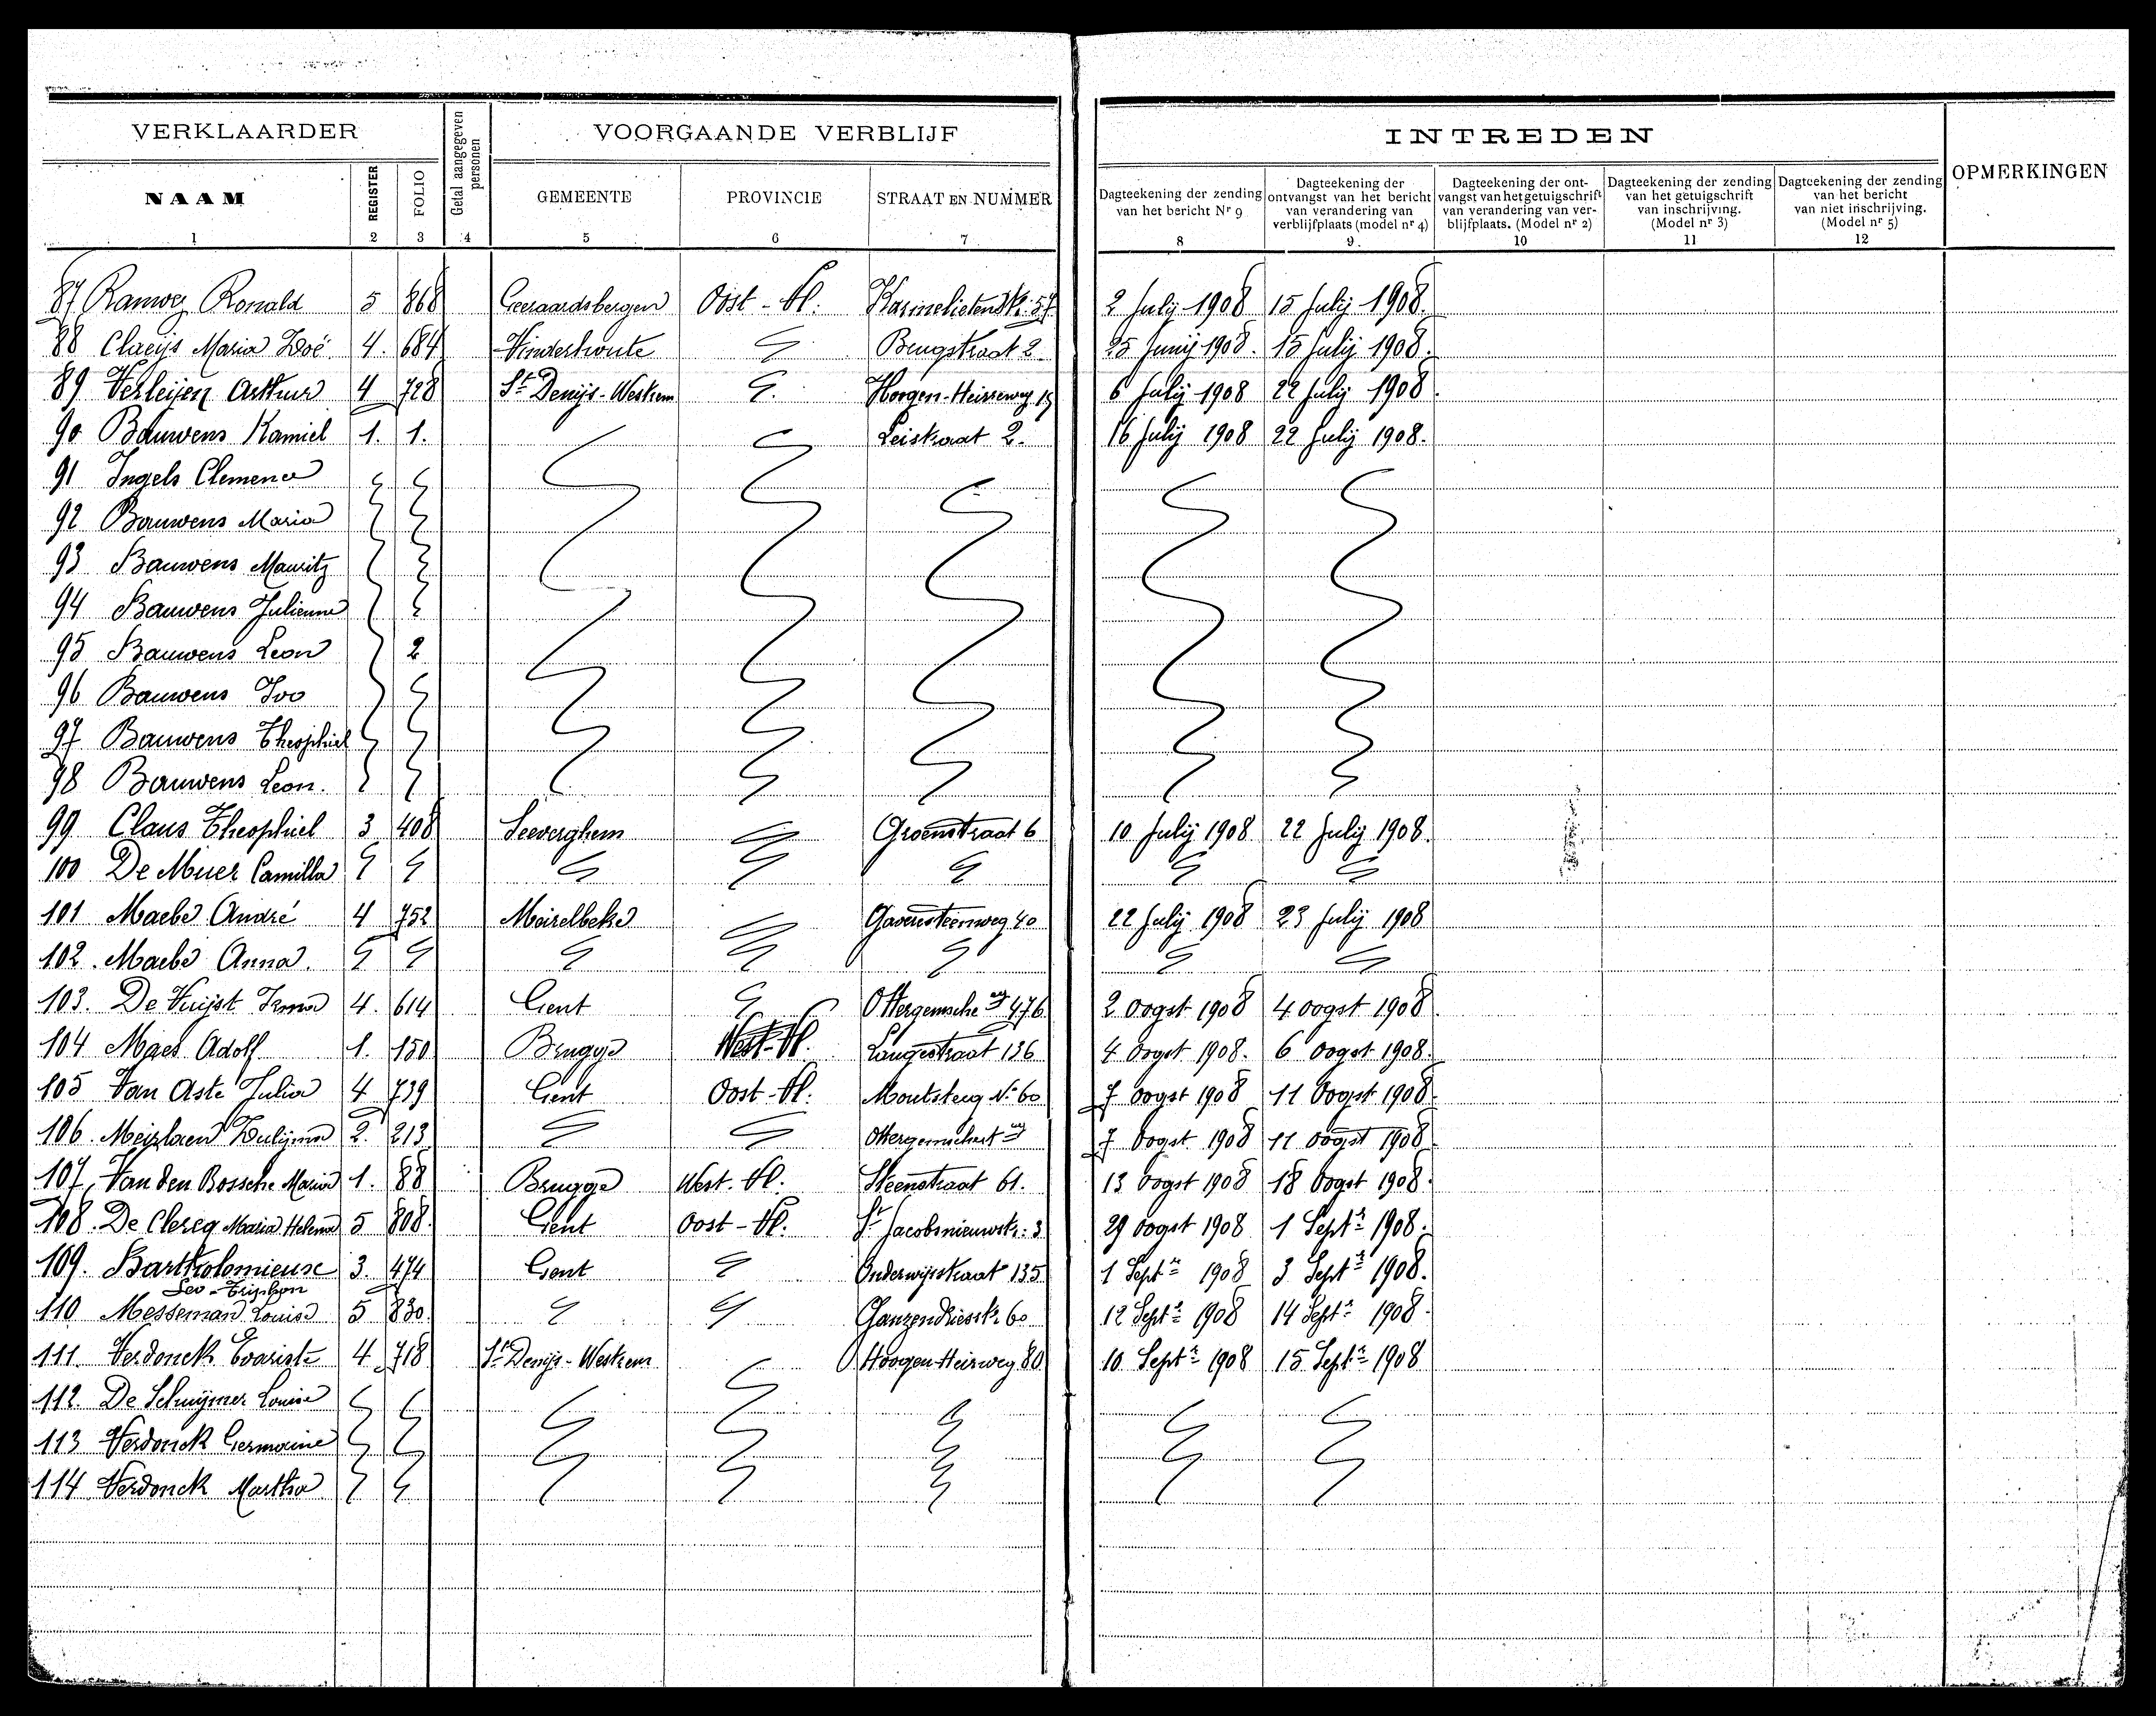 VERKLAARDER
Getal aangegeven personen
VOORGAANDE VERBLIJF
INTREDEN
OPMERKINGEN
NAAM REGISTER FOLIO GEMEENTE PROVINCIE STRAAT EN NUMMER
Dagteekening der zending van het bericht Nr 9
Dagteekening der ontvangst van het bericht van verandering van verblijfplaats (model nr 4)
Dagteekening der ontvangst van het getuigschrift van verandering van verblijfplaats. (Model nr 2)
Dagteekening der zending van het getuigschrift van inschrijving. (Model nr 3)
Dagteekening der zending van het bericht van niet inschrijving. (Model nr 5)
1 2 3 4 5 6 7 8 9 10 11 12
87 Ramwez Ronald 5 868 Geeraardsbergen Oost-Vl. Karmelietenstr. 57 2 July 1908 15 July 1908.
88 Claeijs Maria Zoé 4. 684 Vinderhoute Brugstraat 2 25 Junij 1908. 15 Julij 1908.
89 Verleijen Arthur 4 728 St Denijs-Westrem Hoogen-Heirweg 19 6 July 1908 22 July 1908.
90 Bauwens Kamiel 1. 1. Leistraat 2. 16 July 1908 22 July 1908.
91 Ingels Clemence
92 Bauwens Maria
93 Bauwens Mauritz
94 Bauwens Julienne
95 Bauwens Leon 2
96 Bauwens Ivo
97 Bauwens Theophiel
98 Bauwens Leon.
99 Claus Theophiel 3 408 Seeverghem Groenstraat 6 10 July 1908 22 July 1908.
100 De Muer Camilla
101 Maebe André 4 752 Meirelbeke Gaversteenweg 40 22 July 1908 23 July 1908
102. Maebe Anna.
103. De Vuijst Irma 4. 614 Gent Ottergemsche weg 476 2 Oogst 1908 4 oogst 1908
104 Maes Adolf 1. 150 Brugge West-Vl. Langestraat 136 4 Oogst 1908. 6 Oogst 1908.
105 Van Aste Julia 4 739 Gent Oost-Vl. Moutsteeg No 60 7 Oogst 1908 11 Oogst 1908
106. Zulijma 2. 213 7 Oogst. 1908 11 Oogst 1908
107, Van den Bossche Maria 1. 88 Brugge West. Vl. Steenstraat 61. 13 Oogst 1908 18 Oogst 1908.
108. De Clercq Maria Helena 5 808. Gent Oost-Vl. St Jacobsnieuwstr: 3 29 Oogst 1908 1 Septr 1908.
109. Bartholomieuse 3. 474 Gent Onderwijsstraat 135 1 Septr 1908 3 Septr 1908.
Leo-Triphon
110 Messeman Louise 5 830. Ganzendriesstr. 60 12 Septr 1908 14 Septr 1908.
111. Verdonck Evariste 4 718 St Denijs-Westrem Hoogen Heirweg 80 10 Septr 1908 15 Septr 1908
112. De Schuijmer Louise
113 Verdonck Germaine
114 Verdonck Martha